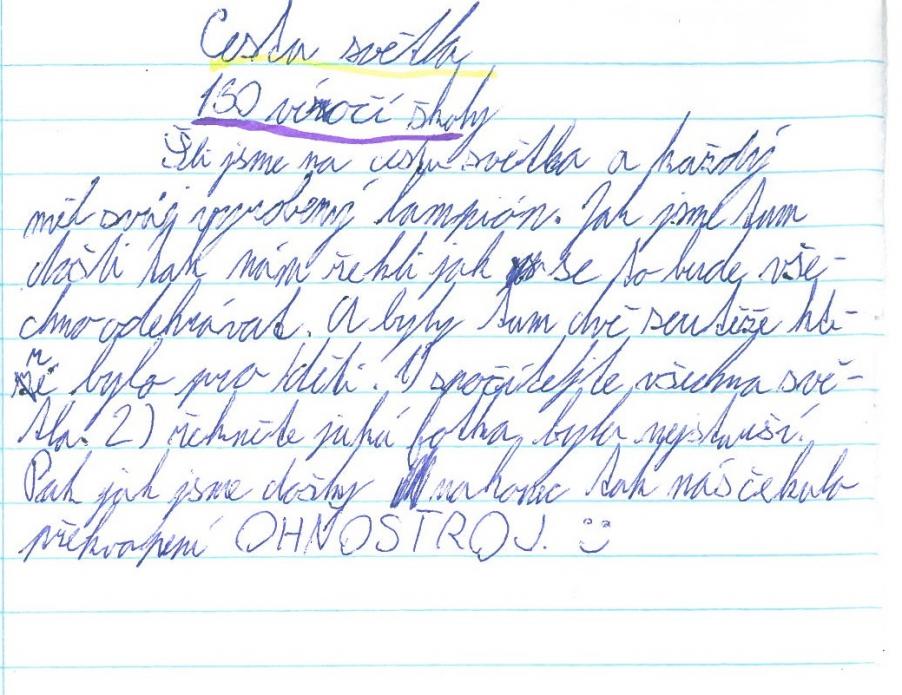 Cesta světla
130 víročí školy
Šli jsme na cestu světla a každý
měl svůj vyrobený lampión. Jak jsme tam
došli tak nám řekli jak se to bude vše-
chno odehrávat. A byly tam dvě soutěže kte-
ré bylo pro děti. 1) spočítejte všechna svě-
tla. 2) řekněte jaká fotka byla nejstarší.
Pak jak jsme došly na konec tak nás čekalo
překvapení OHNOSTROJ. :)